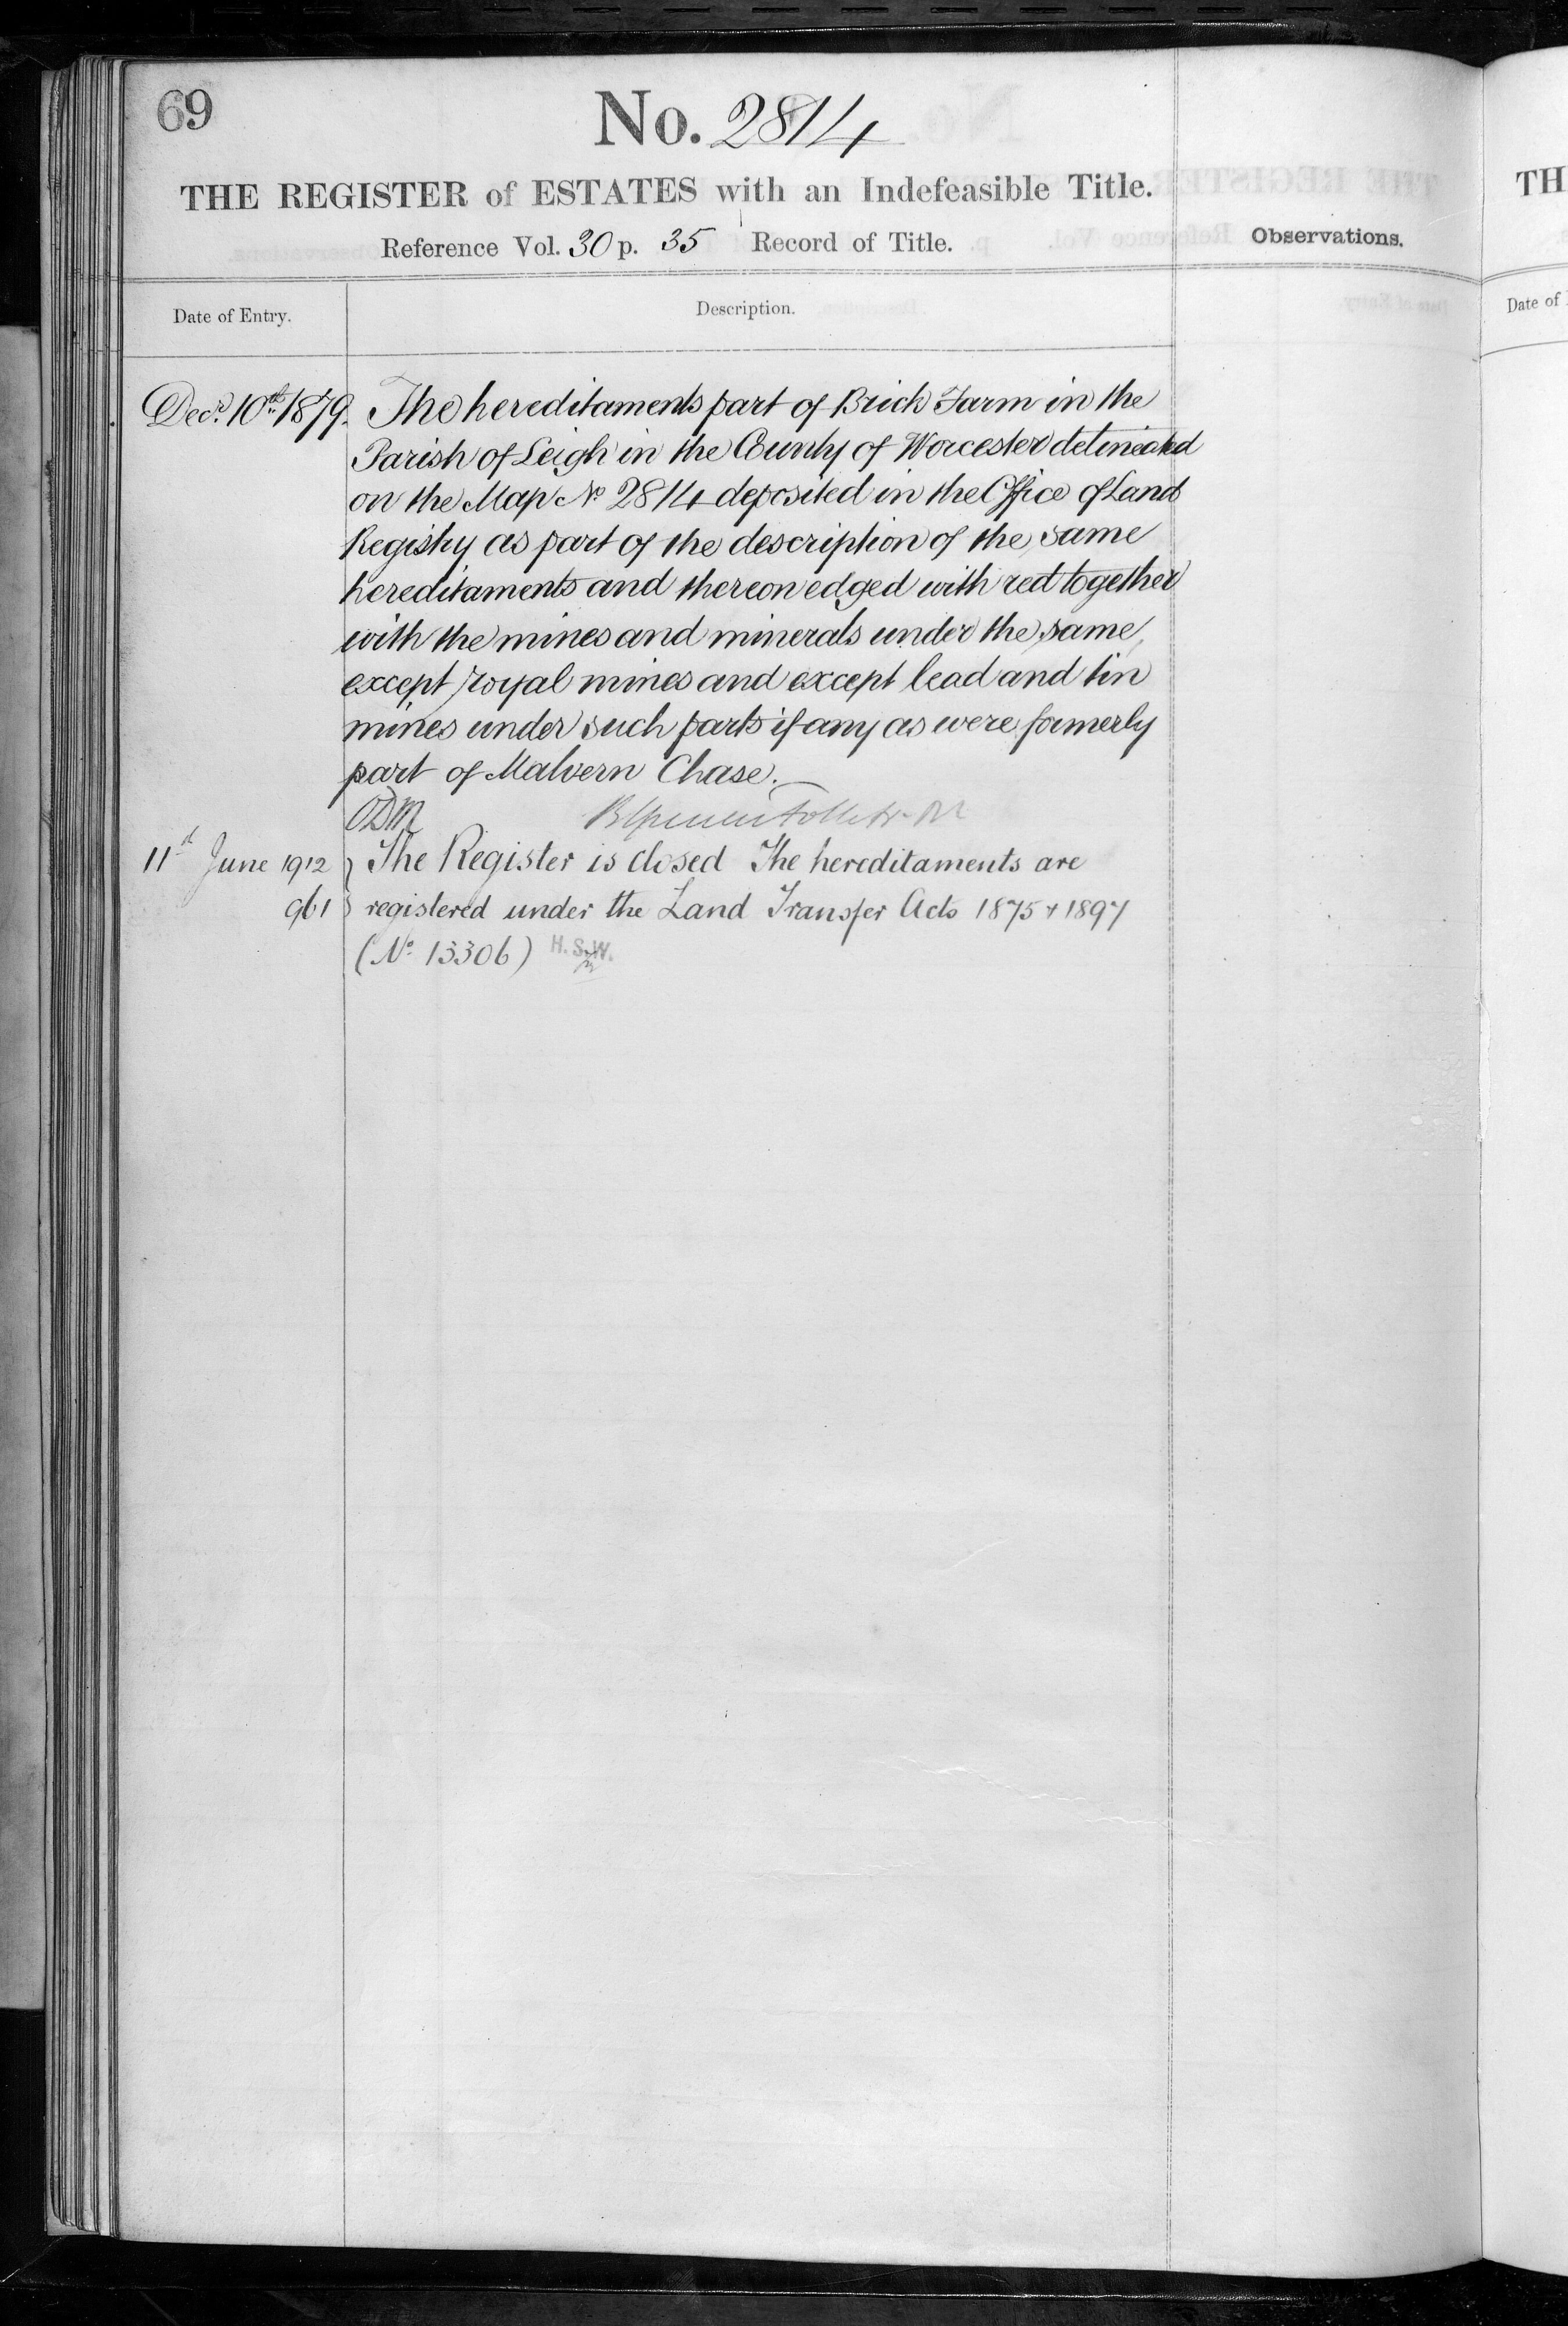 69
No. 2814
THE REGISTER of ESTATES with an Indefeasible Title.
Reference Vol. 30 p. 35 Record of Title.
Observations.
Date of Entry.
Description.
Decr. 10th 1879. The hereditaments part of Brick Farm in the
Parish of Leigh in the County of Worcester delineated
on the Map No 2814 deposited in the Office of Land
Registry as part of the description of the same
hereditaments and thereon edged with red together
with the mines and minerals under the same,
except royal mines and except lead and tin
mines under such parts if any as were formerly
part of Malvern Chase.
ODM
11th June 1912 } The Register is closed The hereditaments are
961 } registered under the Land Transfer Acts 1875 + 1897
(No. 13306) H.S.W.
TH
Date of